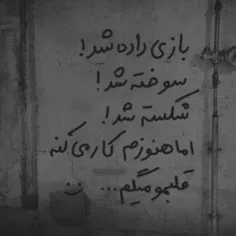 بازی داده شد!
سوخته شد!
شکسته شد!
اما هنوزم کار می کنه
قلبمو میگم...